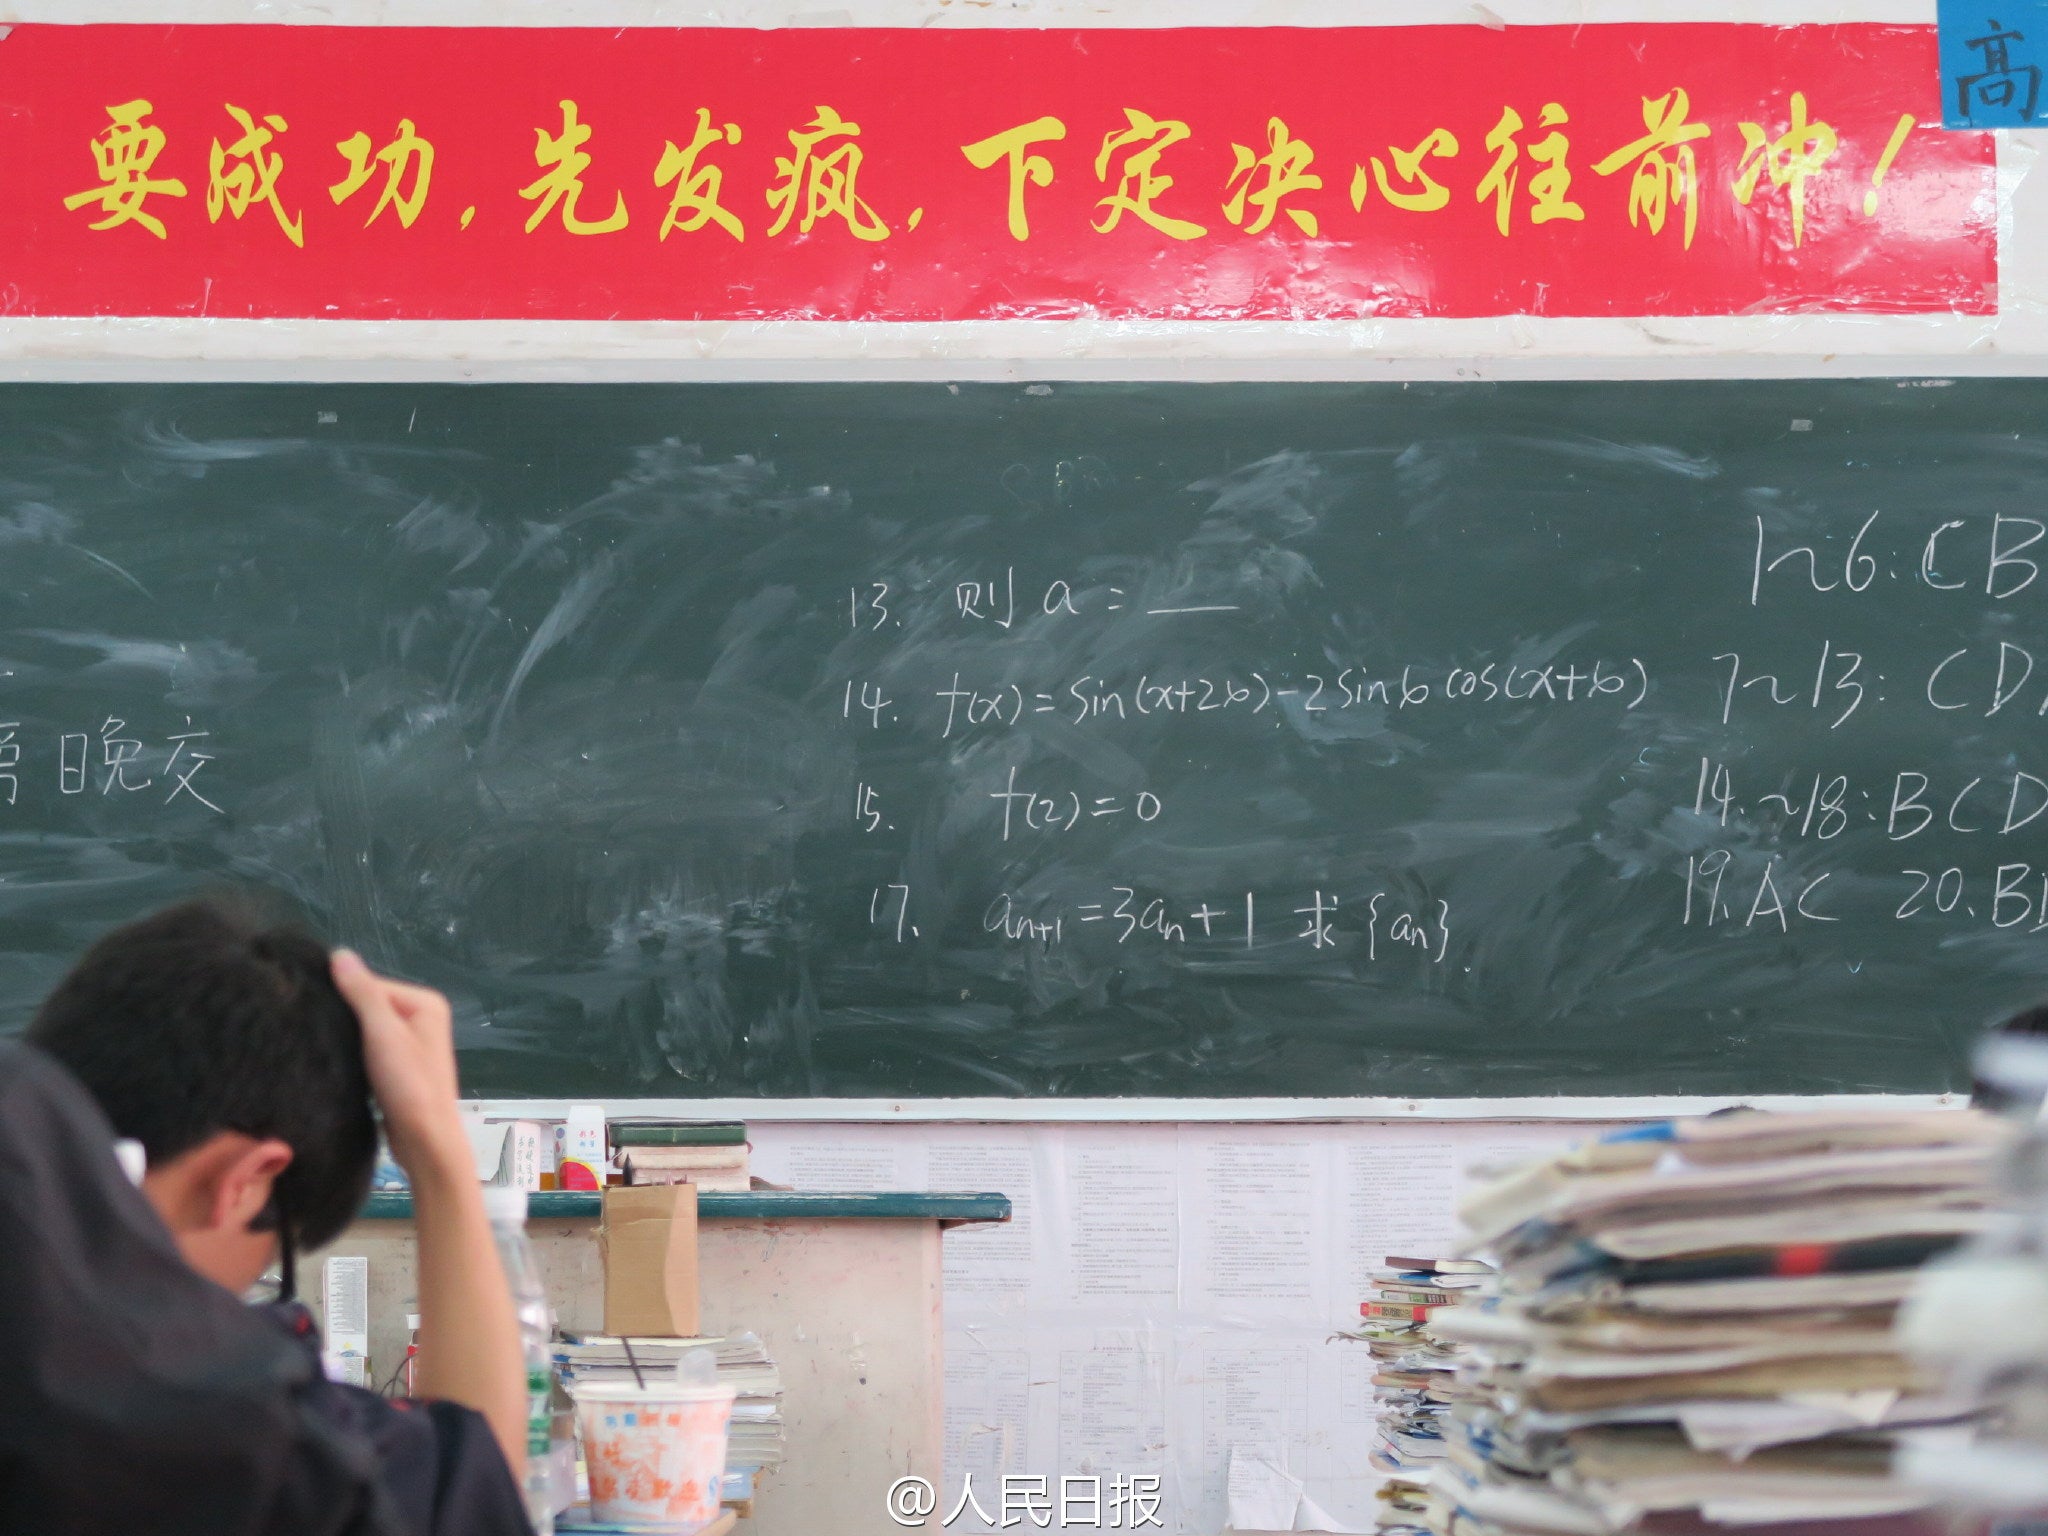 要成功,先发疯,下定决心往前冲!
高
13. 则 a = ___
14. f(x)=sin(x+2φ)-2sinφcos(x+φ)
15. f(2)=0
17. aₙ₊₁=3aₙ+1 求{aₙ}.
日晚交
1~6:CB
7~13:CD
14.~18:BCD
19.AC 20.B
@人民日报